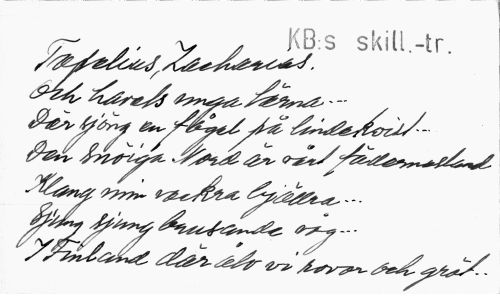 KB:s skill.-tr.
Topelius, Zacharias.
Och havets unga tärna...
Där sjöng en fågel på lindekvist...
Den snöiga Nord är vårt fädernesland
Klang min vackra bjällra...
Sjung sjung brusande våg...
I Finland där äto vi rovor och gröt..